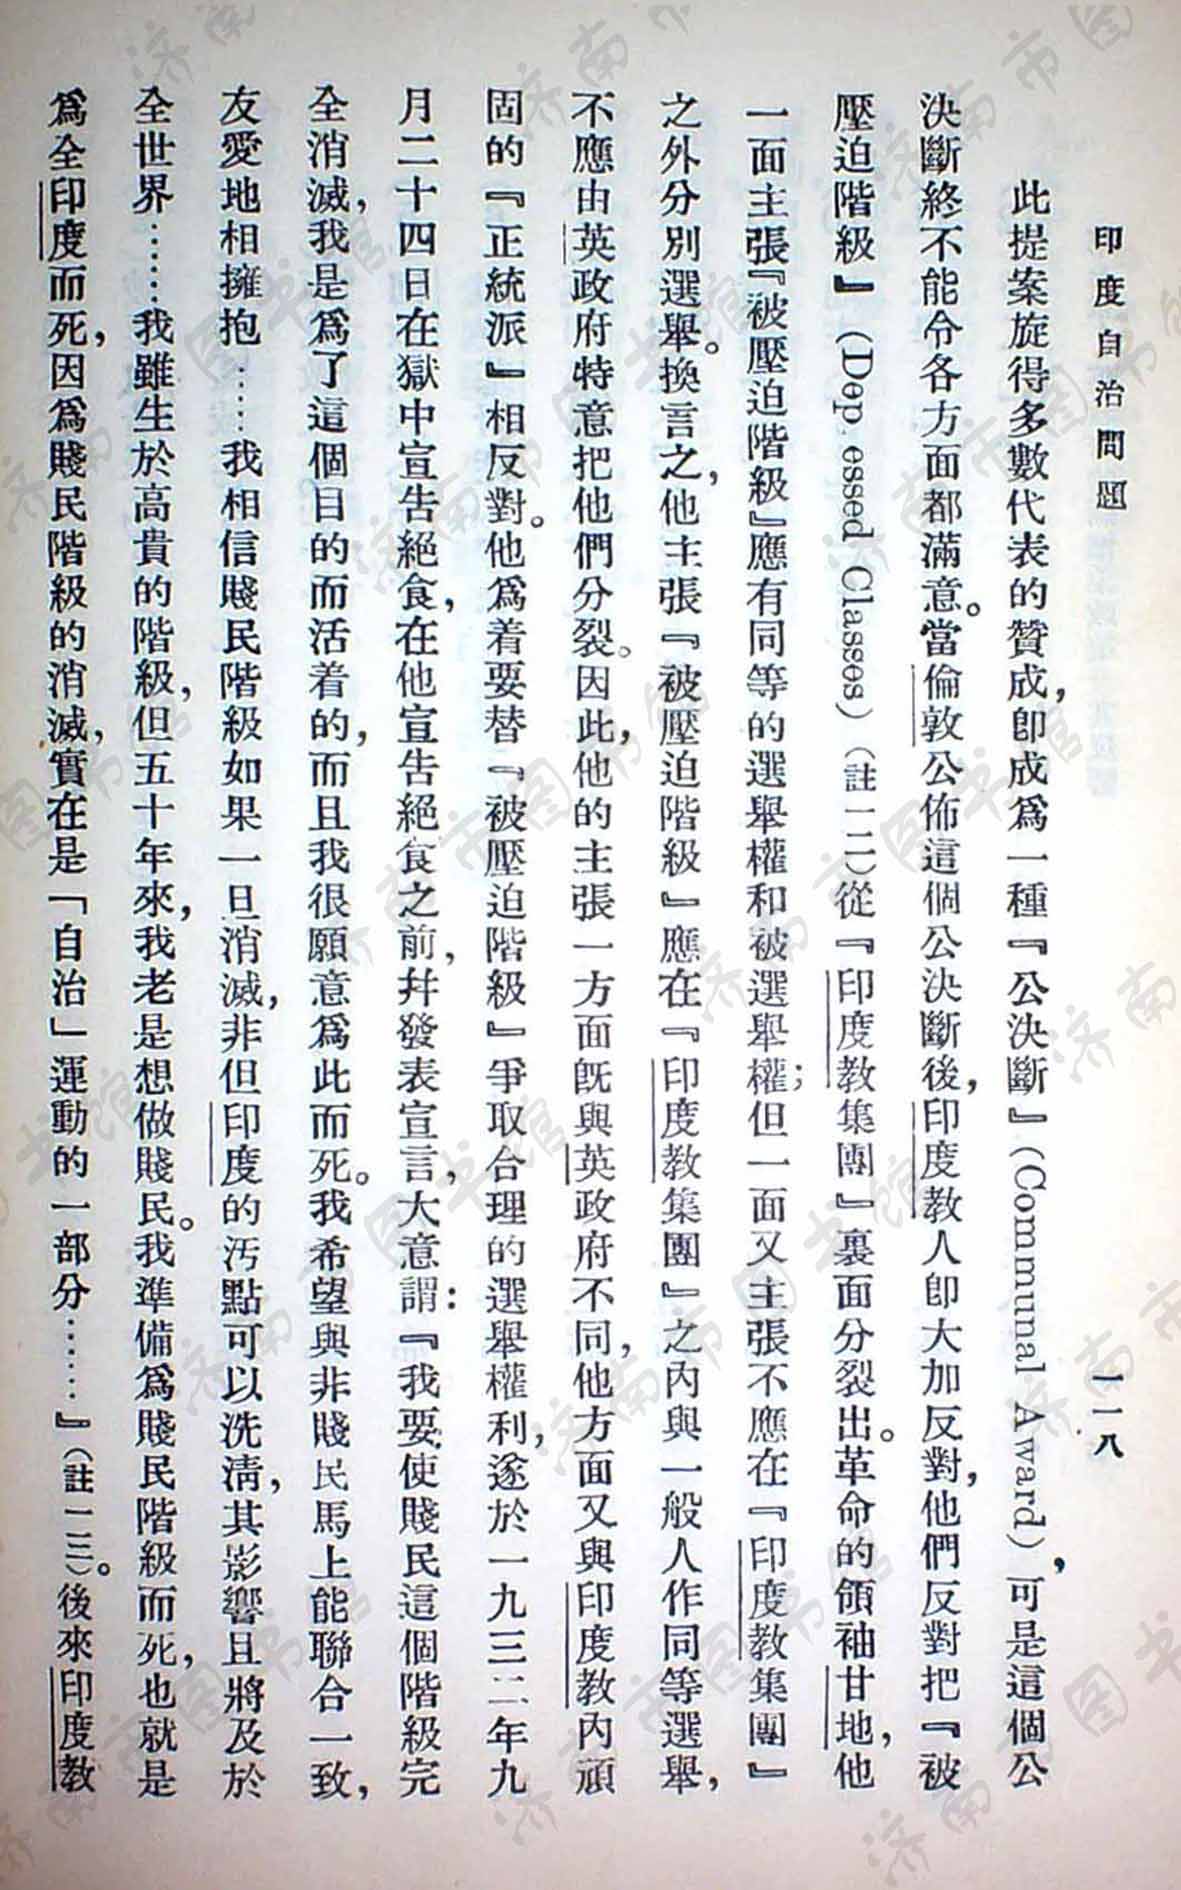 印度自治問題
一一八
此提案旋得多數代表的贊成，卽成爲一種『公決斷』(Communal Award)，可是這個公
決斷終不能令各方面都滿意。當倫敦公佈這個公決斷後，印度教人卽大加反對，他們反對把『被
壓迫階級』(Dep essed Classes)（註一二）從『印度教集團』裏面分裂出。革命的領袖甘地，他
一面主張『被壓迫階級』應有同等的選舉權和被選舉權；但一面又主張不應在『印度教集團』
之外分別選舉。換言之，他主張『被壓迫階級』應在『印度教集團』之內與一般人作同等選舉，
不應由英政府特意把他們分裂。因此，他的主張一方面旣與英政府不同，他方面又與印度教內頑
固的『正統派』相反對。他爲着要替『被壓迫階級』爭取合理的選舉權利，遂於一九三二年九
月二十四日在獄中宣告絕食，在他宣告絕食之前，幷發表宣言，大意謂：『我要使賤民這個階級完
全消滅，我是爲了這個目的而活着的，而且我很願意爲此而死。我希望與非賤民馬上能聯合一致，
友愛地相擁抱……我相信賤民階級如果一旦消滅，非但印度的汚點可以洗淸，其影響且將及於
全世界……我雖生於高貴的階級，但五十年來，我老是想做賤民。我準備爲賤民階級而死，也就是
爲全印度而死，因爲賤民階級的消滅，實在是「自治」運動的一部分……』（註一三）。後來印度教
济南市图书馆